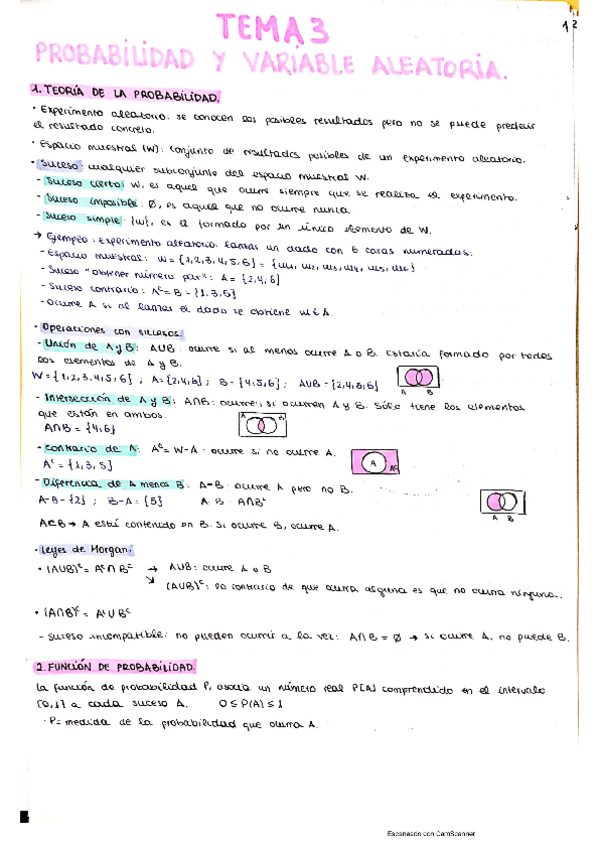 12
TEMA 3
PROBABILIDAD Y VARIABLE ALEATORIA.
1. TEORÍA DE LA PROBABILIDAD.
· Experimento aleatorio: se conocen los posibles resultados pero no se puede predecir
el resultado concreto.
· Espacio muestral (W): conjunto de resultados posibles de un experimento aleatorio.
· Suceso: cualquier subconjunto del espacio muestral W.
- Suceso cierto: W, es aquel que ocurre siempre que se realiza el experimento.
- Suceso imposible: Ø, es aquel que no ocurre nunca.
- Suceso simple: {w}, es el formado por un único elemento de W.
→ Ejemplo: Experimento aleatorio: lanzar un dado con 6 caras numeradas:
- Espacio muestral: W = {1,2,3,4,5,6} = {w1, w2, w3, w4, w5, w6}
- Suceso "obtener número par": A = {2,4,6}
- Suceso contrario: Aᶜ = B = {1,3,5}
- Ocurre A si al lanzar el dado se obtiene w ∈ A.
· Operaciones con sucesos:
- Unión de A y B: AUB: ocurre si al menos ocurre A o B. Estaría formado por todos
los elementos de A y B.
W = {1,2,3,4,5,6}; A = {2,4,6}; B = {4,5,6}; AUB = {2,4,5,6}
A B
- Intersección de A y B: A∩B: ocurre, si ocurren A y B. Sólo tiene los elementos
que están en ambos.
A∩B = {4,6}
A B
- Contrario de A: Aᶜ = W-A: ocurre si no ocurre A.
Aᶜ = {1,3,5}
A Aᶜ
- Diferencia de A menos B: A-B: ocurre A pero no B.
A-B = {2}; B-A = {5} A-B = A∩Bᶜ
A B
A⊂B → A está contenido en B. Si ocurre B, ocurre A.
· Leyes de Morgan:
· (AUB)ᶜ = Aᶜ∩Bᶜ → AUB: ocurre A o B
↘ (AUB)ᶜ: lo contrario de que ocurra alguna es que no ocurra ninguna.
· (A∩B)ᶜ = AᶜUBᶜ
- Suceso incompatible: no pueden ocurrir a la vez: A∩B = Ø → si ocurre A, no puede B.
2. FUNCIÓN DE PROBABILIDAD.
La función de probabilidad P, asocia un número real P[A] comprendido en el intervalo
[0,1] a cada suceso A. 0 ≤ P(A) ≤ 1
· P = medida de la probabilidad que ocurra A.
Escaneado con CamScanner